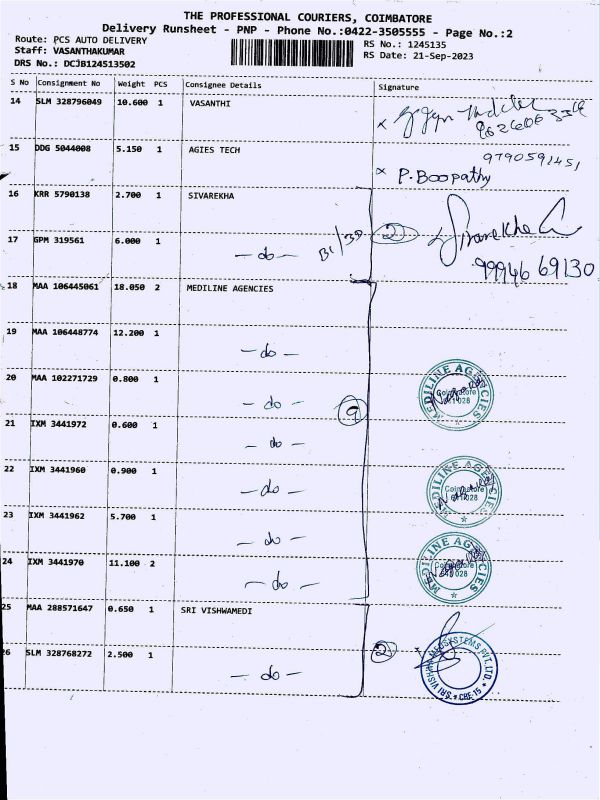 THE PROFESSIONAL COURIERS, COIMBATORE
Delivery Runsheet - PNP - Phone No.:0422-3505555 - Page No.:2
Route: PCS AUTO DELIVERY
Staff: VASANTHAKUMAR
DRS No.: DCJB124513502
RS No.: 1245135
RS Date: 21-Sep-2023
S No Consignment No Weight PCS Consignee Details Signature
14 SLM 328796049 10.600 1 VASANTHI
x
15 DDG 5044008 5.150 1 AGIES TECH 9790591451
x P. Boopathy
16 KRR 5790138 2.700 1 SIVAREKHA
17 GPM 319561 6.000 1
- do - 2 99946 69130
18 MAA 106445061 18.050 2 MEDILINE AGENCIES
19 MAA 106448774 12.200 1
- do -
20 MAA 102271729 0.800 1
- do - 9 MEDILINE AGENCIES Coimbatore 641 028
21 IXM 3441972 0.600 1
- do -
22 IXM 3441960 0.900 1
- do - MEDILINE AGENCIES Coimbatore 641 028
23 IXM 3441962 5.700 1
- do -
24 IXM 3441970 11.100 2
- do - MEDILINE AGENCIES Coimbatore 641 028
25 MAA 288571647 0.650 1 SRI VISHWAMEDI
26 SLM 328768272 2.500 1
- do - 2 SRI VISHWA MEDSYSTEMS PVT. LTD. CBE-15